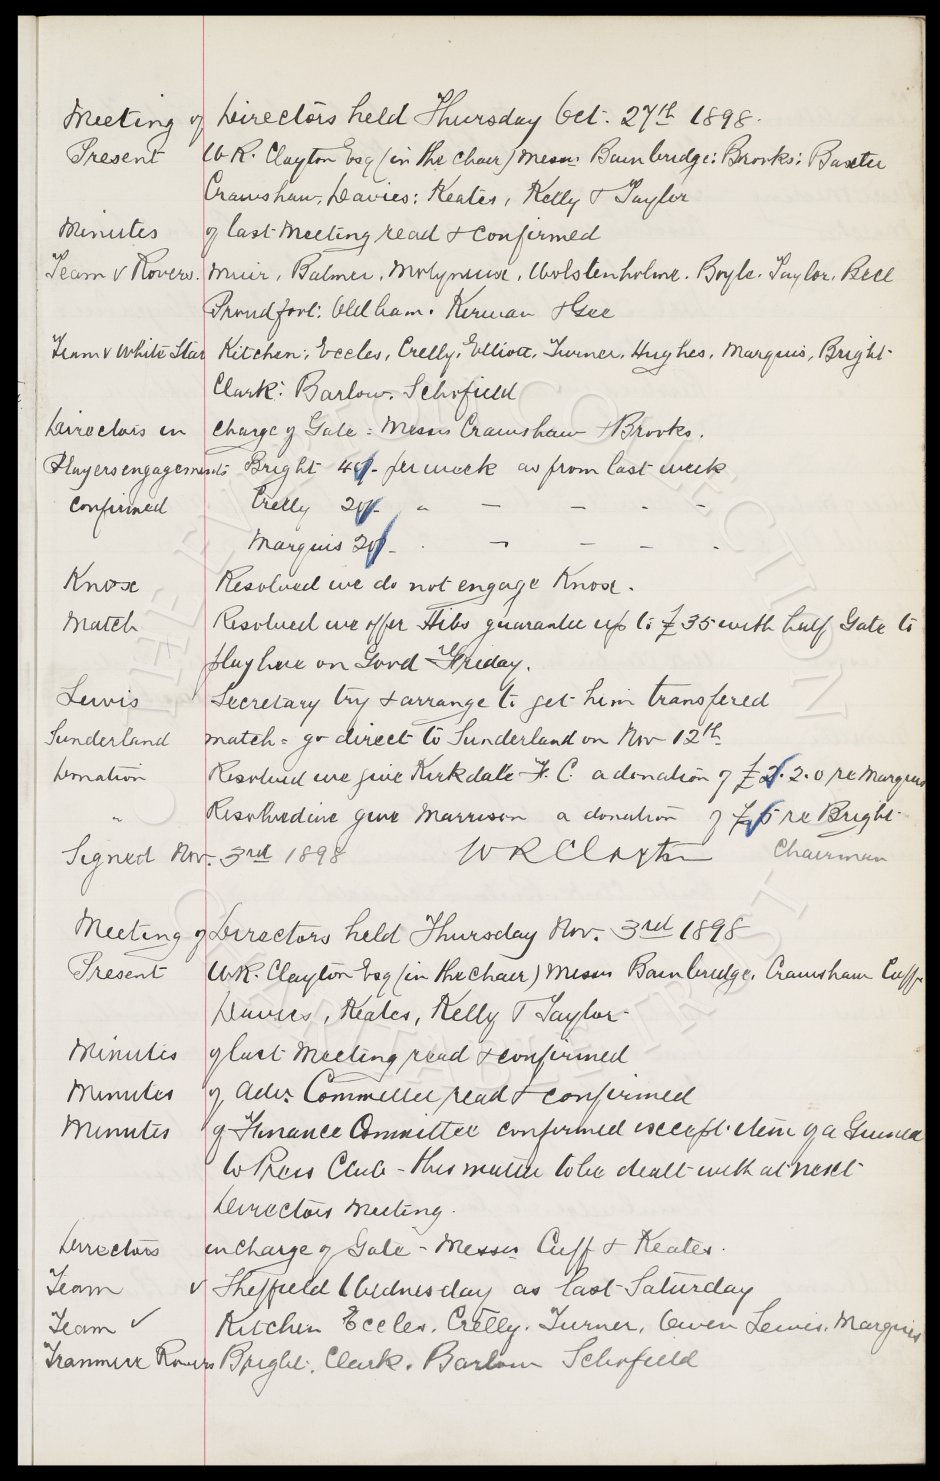 Meeting of Directors held Thursday Oct. 27th 1898.
Present W.R. Clayton Esq (in the chair) Messrs Bainbridge: Brooks: Baxter
Crawshaw, Davies: Keates, Kelly & Taylor
Minutes of last Meeting read & confirmed
Team v Rovers. Muir, Balmer, Molyneux, Wolstenholme. Boyle. Taylor. Bell
Proudfoot: Oldham. Kirwan & Gee
Team v White Star Kitchen: Eccles, Crelly, Elliott, Turner, Hughes, Marquis, Bright
Clark: Barlow. Schofield
Directors in charge of Gate = Messrs Crawshaw & Brooks.
Players engagements Bright 40/- per week as from last week
confirmed Crelly 20/- " - - - -
Marquis 20/- . - - - -
Knox Resolved we do not engage Knox.
Match Resolved we offer Hibs guarantee up to £35 with half Gate to
play here on Good Friday.
Lewis Secretary try & arrange to get him transfered
Sunderland match = go direct to Sunderland on Nov 12th
Donation Resolved we give Kirkdale F.C. a donation of £2.2.0 re Marquis
" Resolved we give Marrison a donation of £5 re Bright
Signed Nov. 3rd 1898 W R Clayton Chairman
Meeting of Directors held Thursday Nov. 3rd 1898
Present W.R. Clayton Esq (in the chair) Messrs Bainbridge, Crawshaw Cuff
Davies, Keates, Kelly & Taylor
Minutes of last Meeting read & confirmed
Minutes of Adv. Committee read & confirmed
Minutes of Finance Committee confirmed except item of a Guinea
to Press Club - this matter to be dealt with at next
Directors Meeting.
Directors in charge of Gate - Messrs Cuff & Keates.
Team v Sheffield Wednesday as last Saturday
Team v Kitchen Eccles. Crelly. Turner, Owen Lewis. Marquis
Tranmere Rovers Bright. Clark. Barlow Schofield
THE EVERTON COLLECTION
CHARITABLE TRUST